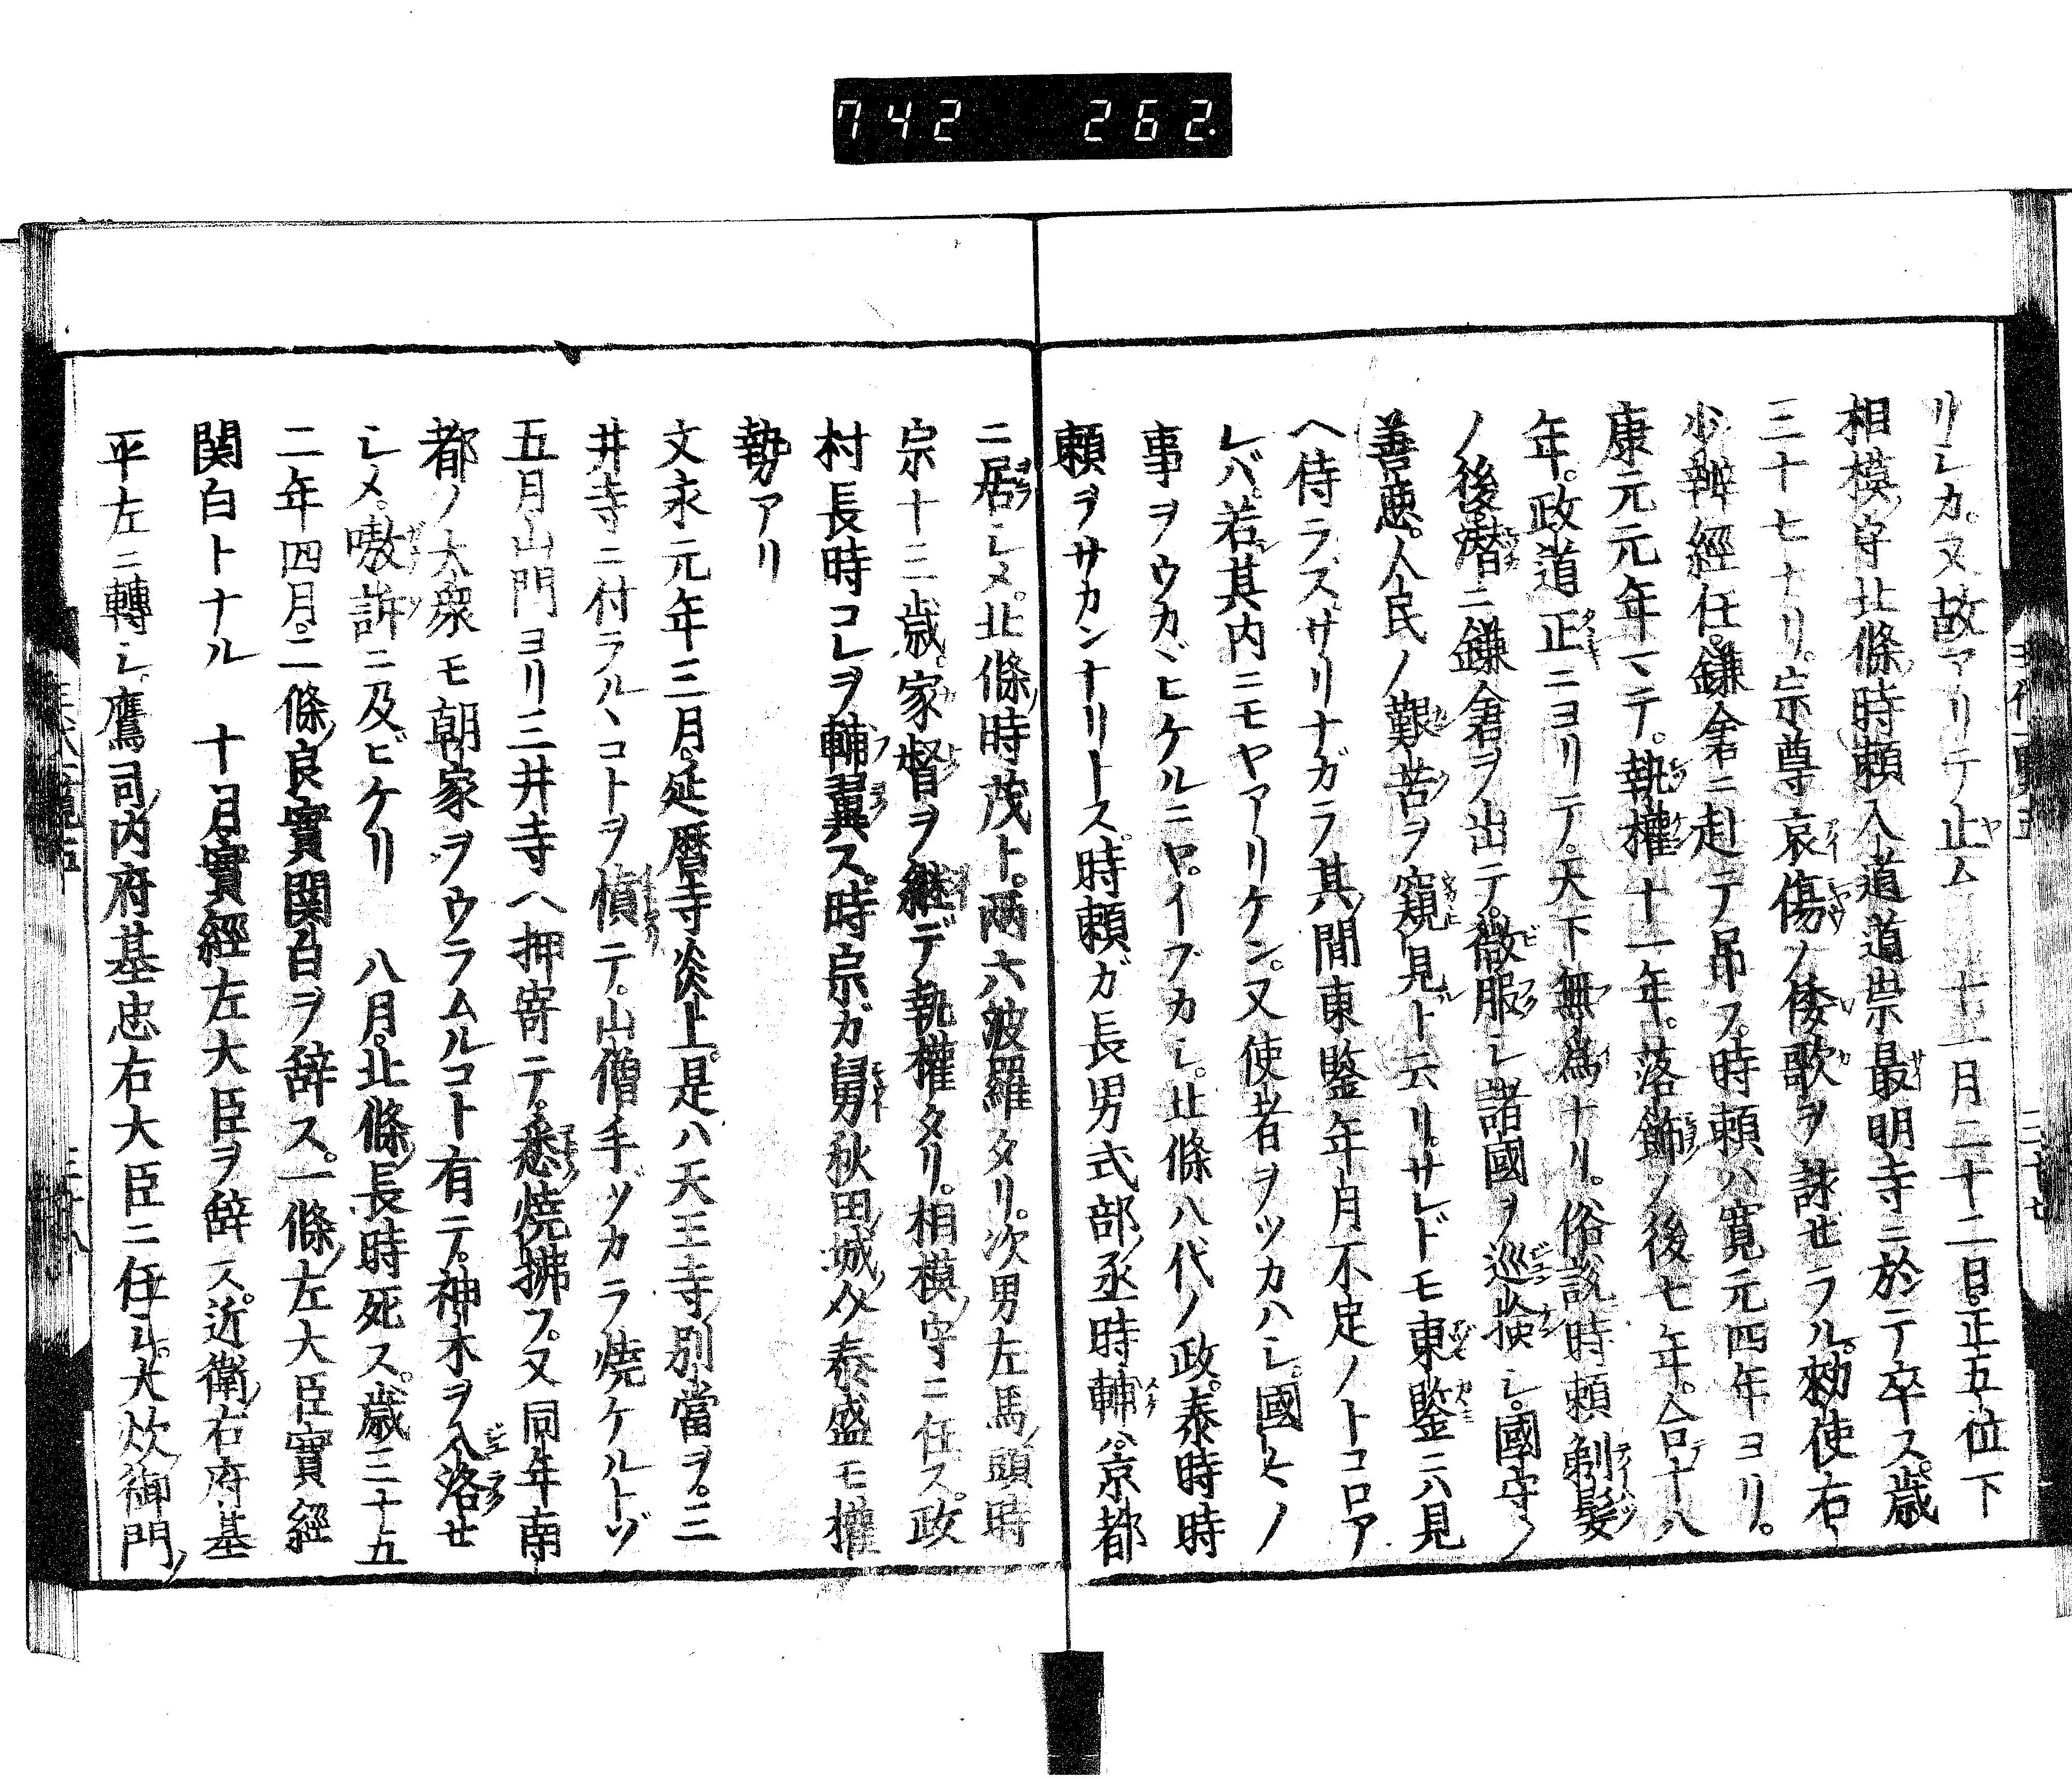 742 262.
リシカ。又故アリテ止ム 十一月二十二日。正五位下
相模守北條時頼入道道崇最明寺ニ於テ卒ス。歳
三十七ナリ。宗尊哀傷ノ倭歌ヲ詠ゼラル。勅使右
少辨經任。鎌倉ニ赴テ吊フ。時頼ハ寛元四年ヨリ。
康元元年マテ。執權十一年。落飾ノ後七年。合テ十八
年。政道正ニヨリテ。天下無爲ナリ。俗説時頼剃髮
ノ後。潜ニ鎌倉ヲ出テ。微服シ諸國ヲ巡撿シ。國守ノ
善惡。人民ノ艱苦ヲ窺見ト云リ。サレドモ東鑒ニハ見
ヘ侍ラズ。サリナガラ其間東鑒年月不足ノトコロア
レバ。若其内ニモヤアリケン。又使者ヲツカハシ。國々ノ
事ヲウカヾヒケルニヤ。イブカシ。北條八代ノ政。泰時時
頼ヲサカンナリトス。時頼ガ長男式部丞時輔ハ。京都
ニ居シメ。北條時茂ト。両六波羅タリ。次男左馬頭時
宗十三歳。家督ヲ継デ執權タリ。相模守ニ任ス。政
村長時コレヲ輔翼ス。時宗ガ舅秋田城介泰盛モ權
勢アリ
文永元年三月。延暦寺炎上。是ハ天王寺別當ヲ。三
井寺ニ付ラルヽコトヲ憤テ。山僧手ヅカラ燒ケルトゾ
五月山門ヨリ三井寺ヘ押寄テ。悉燒拂フ。又同年南
都ノ大衆モ朝家ヲウラムルコト有テ。神木ヲ入洛せ
シメ。嗷訴ニ及ビケリ 八月。北條長時死ス。歳三十五
二年四月。二條良實関白ヲ辞ス。一條左大臣實經
関白トナル 十月實經左大臣ヲ辞ス。近衛右府基
平左ニ轉シ。鷹司内府基忠右大臣ニ任シ。大炊御門